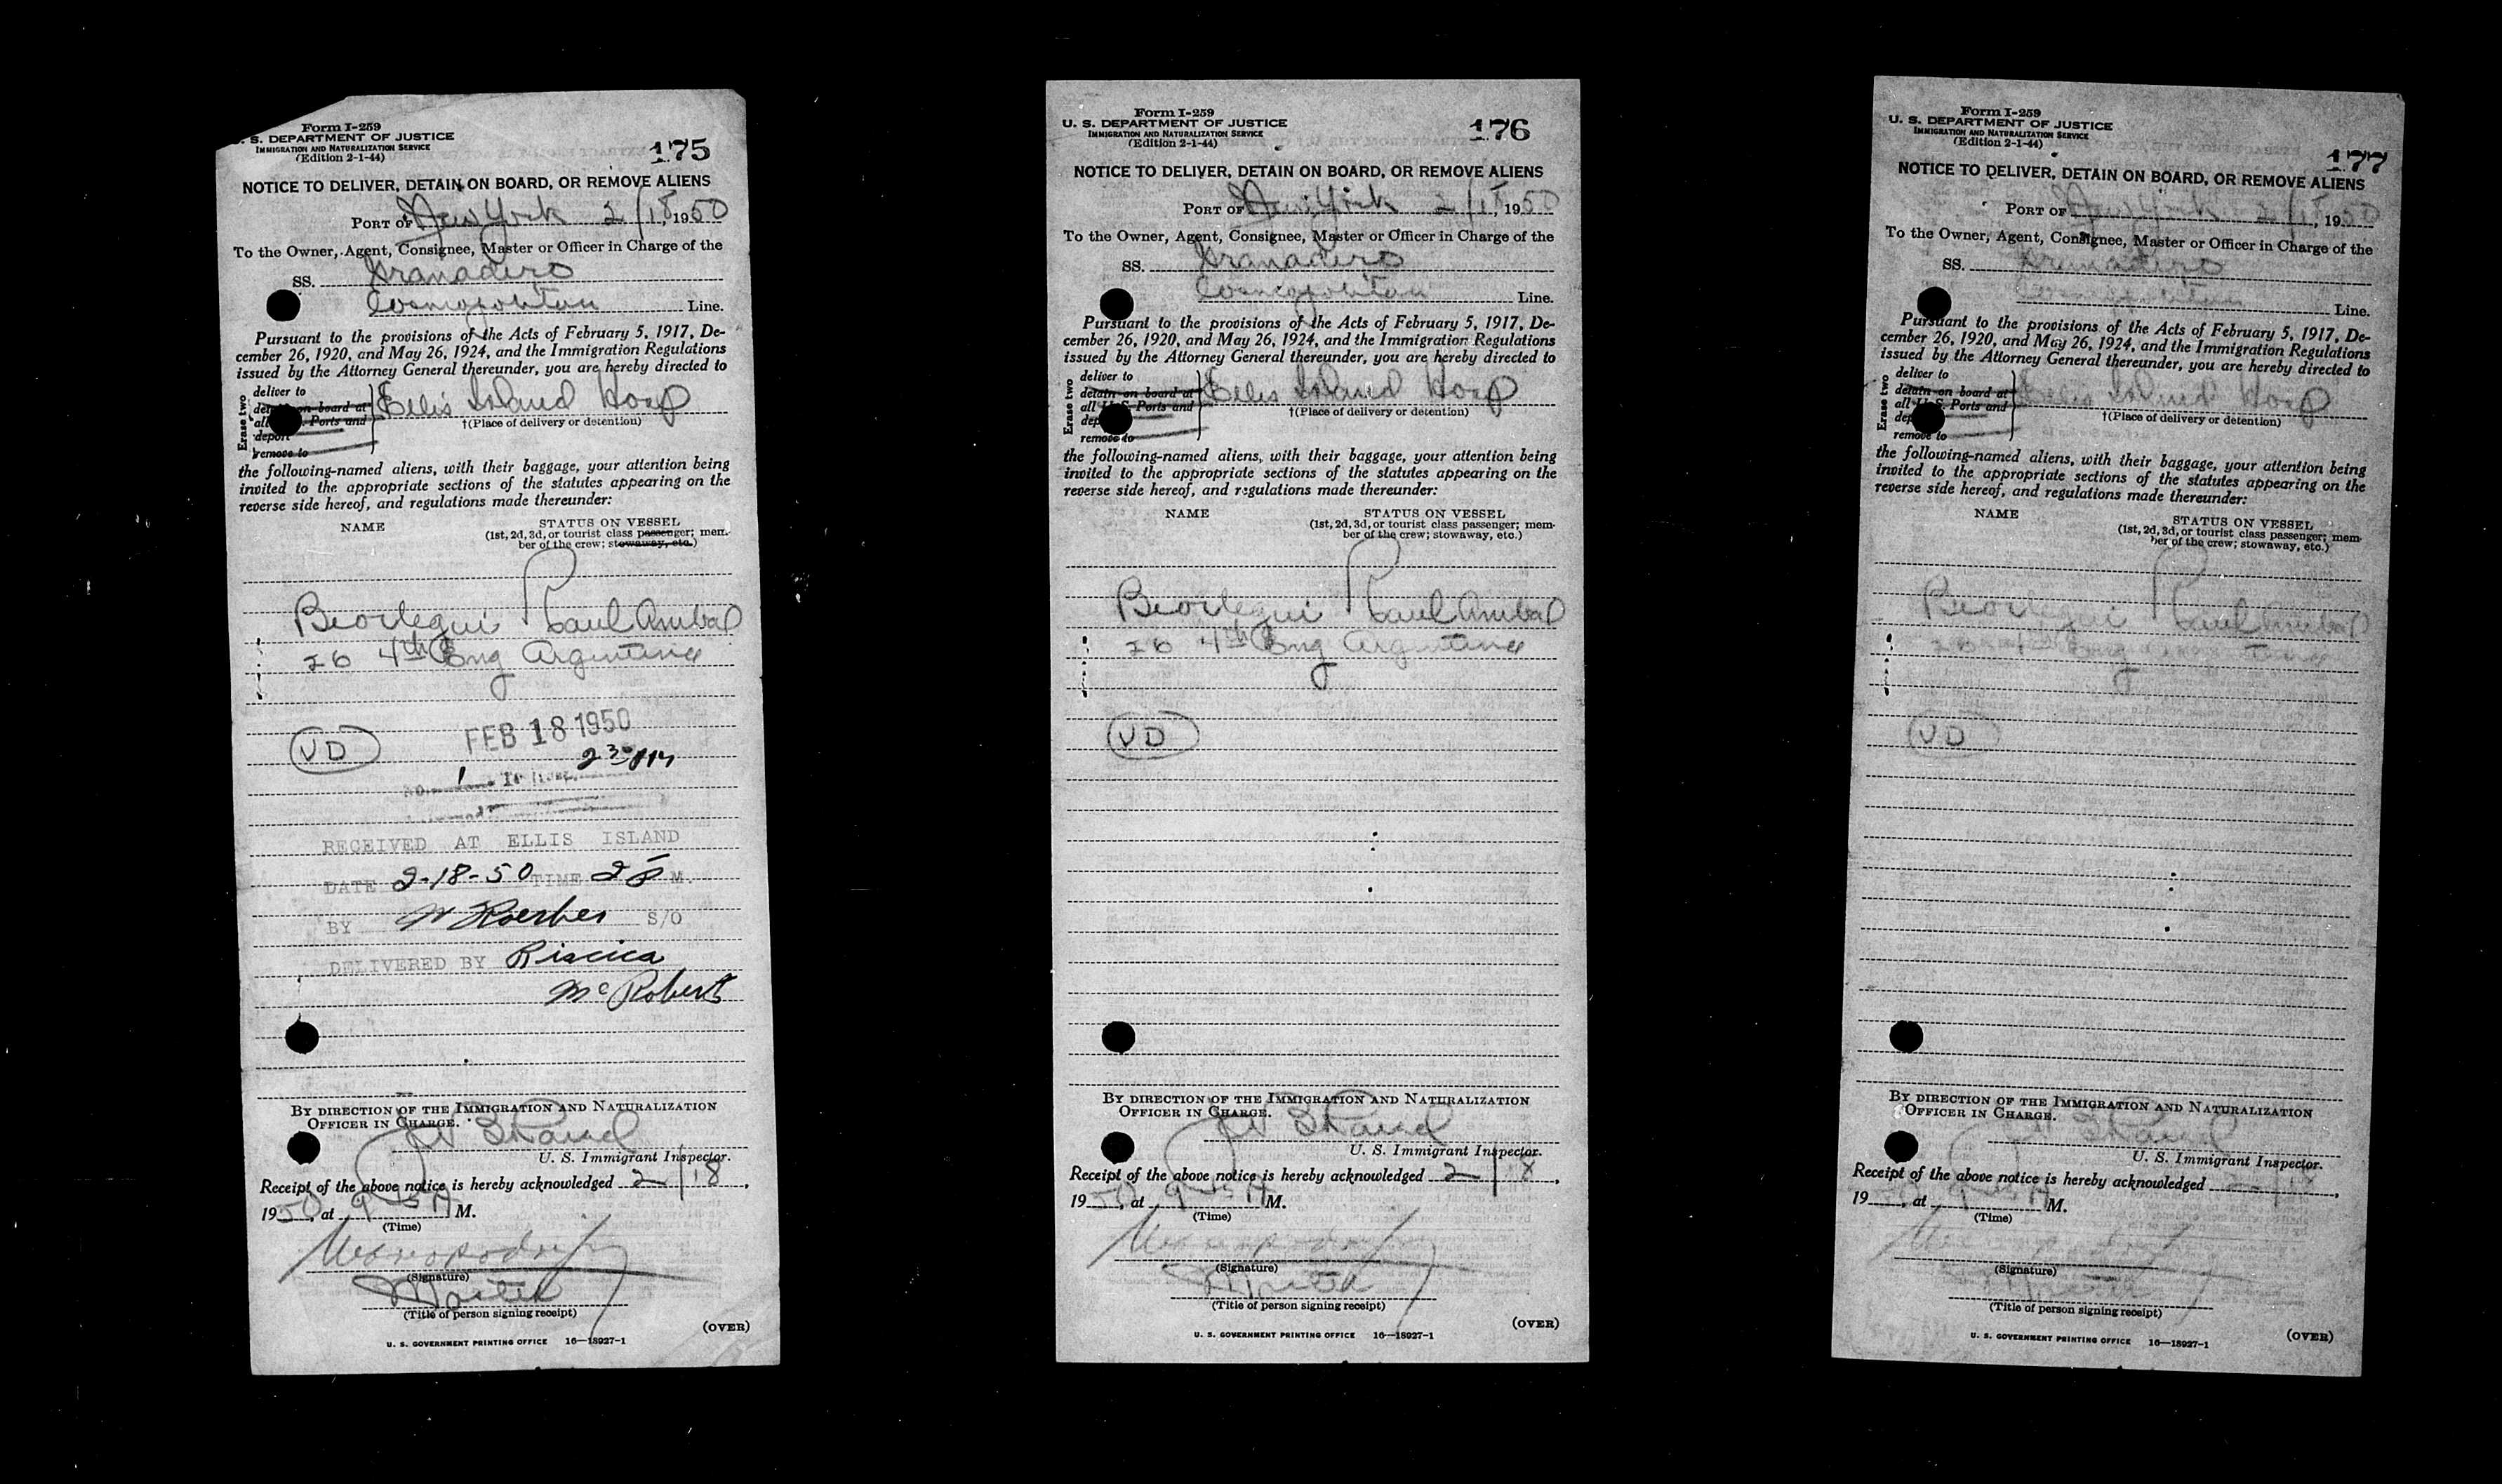 Form I-259
U. S. DEPARTMENT OF JUSTICE
IMMIGRATION AND NATURALIZATION SERVICE
(Edition 2-1-44)
175
NOTICE TO DELIVER, DETAIN ON BOARD, OR REMOVE ALIENS
PORT OF New York 2/18, 1950
To the Owner, Agent, Consignee, Master or Officer in Charge of the
SS. Granadero
Cosmopolitan Line.
Pursuant to the provisions of the Acts of February 5, 1917, De-
cember 26, 1920, and May 26, 1924, and the Immigration Regulations
issued by the Attorney General thereunder, you are hereby directed to
Erase two
deliver to
detain on board at
all U. S. Ports and
deport
remove to
Ellis Island Hosp
†(Place of delivery or detention)
the following-named aliens, with their baggage, your attention being
invited to the appropriate sections of the statutes appearing on the
reverse side hereof, and regulations made thereunder:
NAME STATUS ON VESSEL
(1st, 2d, 3d, or tourist class passenger; mem-
ber of the crew; stowaway, etc.)
Beorlegui Raul Anibal
26 4th Eng Argentina
VD
FEB 18 1950
2 30 PM
RECEIVED AT ELLIS ISLAND
DATE 2-18-50 TIME 2 P M.
BY W Koerber S/O
DELIVERED BY Riscica
McRoberts
BY DIRECTION OF THE IMMIGRATION AND NATURALIZATION
OFFICER IN CHARGE.
U. S. Immigrant Inspector.
Receipt of the above notice is hereby acknowledged 2/18,
1950, at 9 15 A M.
(Time)
(Signature)
Master
(Title of person signing receipt)
(OVER)
U. S. GOVERNMENT PRINTING OFFICE 16—18927-1
Form I-259
U. S. DEPARTMENT OF JUSTICE
IMMIGRATION AND NATURALIZATION SERVICE
(Edition 2-1-44)
176
NOTICE TO DELIVER, DETAIN ON BOARD, OR REMOVE ALIENS
PORT OF New York 2/18, 1950
To the Owner, Agent, Consignee, Master or Officer in Charge of the
SS. Granadero
Cosmopolitan Line.
Pursuant to the provisions of the Acts of February 5, 1917, De-
cember 26, 1920, and May 26, 1924, and the Immigration Regulations
issued by the Attorney General thereunder, you are hereby directed to
Erase two
deliver to
detain on board at
all U. S. Ports and
deport
remove to
Ellis Island Hosp
†(Place of delivery or detention)
the following-named aliens, with their baggage, your attention being
invited to the appropriate sections of the statutes appearing on the
reverse side hereof, and regulations made thereunder:
NAME STATUS ON VESSEL
(1st, 2d, 3d, or tourist class passenger; mem-
ber of the crew; stowaway, etc.)
Beorlegui Raul Anibal
26 4th Eng Argentina
VD
BY DIRECTION OF THE IMMIGRATION AND NATURALIZATION
OFFICER IN CHARGE.
U. S. Immigrant Inspector.
Receipt of the above notice is hereby acknowledged 2/18,
1950, at 9 15 A M.
(Time)
(Signature)
Master
(Title of person signing receipt)
(OVER)
U. S. GOVERNMENT PRINTING OFFICE 16—18927-1
Form I-259
U. S. DEPARTMENT OF JUSTICE
IMMIGRATION AND NATURALIZATION SERVICE
(Edition 2-1-44)
177
NOTICE TO DELIVER, DETAIN ON BOARD, OR REMOVE ALIENS
PORT OF New York 2/18, 1950
To the Owner, Agent, Consignee, Master or Officer in Charge of the
SS. Granadero
Cosmopolitan Line.
Pursuant to the provisions of the Acts of February 5, 1917, De-
cember 26, 1920, and May 26, 1924, and the Immigration Regulations
issued by the Attorney General thereunder, you are hereby directed to
Erase two
deliver to
detain on board at
all U. S. Ports and
deport
remove to
Ellis Island Hosp
†(Place of delivery or detention)
the following-named aliens, with their baggage, your attention being
invited to the appropriate sections of the statutes appearing on the
reverse side hereof, and regulations made thereunder:
NAME STATUS ON VESSEL
(1st, 2d, 3d, or tourist class passenger; mem-
ber of the crew; stowaway, etc.)
Beorlegui Raul Anibal
26 4th Eng Argentina
VD
BY DIRECTION OF THE IMMIGRATION AND NATURALIZATION
OFFICER IN CHARGE.
U. S. Immigrant Inspector.
Receipt of the above notice is hereby acknowledged 2/18,
1950, at 9 15 A M.
(Time)
(Signature)
(Title of person signing receipt)
(OVER)
U. S. GOVERNMENT PRINTING OFFICE 16—18927-1